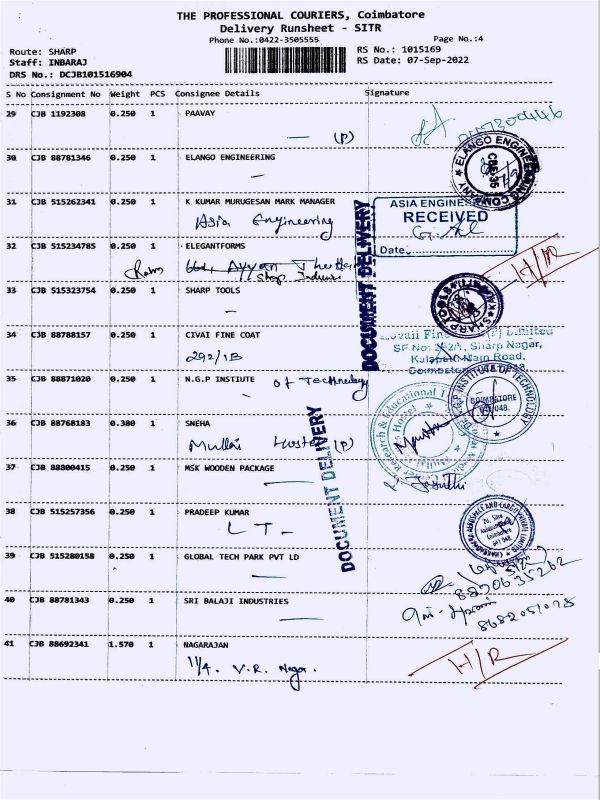 THE PROFESSIONAL COURIERS, Coimbatore
Delivery Runsheet - SITR
Phone No.:0422-3505555 Page No.:4
Route: SHARP RS No.: 1015169
Staff: INBARAJ RS Date: 07-Sep-2022
DRS No.: DCJB101516904
S No Consignment No Weight PCS Consignee Details Signature
29 CJB 1192308 0.250 1 PAAVAY
(P)
30 CJB 88781346 0.250 1 ELANGO ENGINEERING
ELANGO ENGINEERING COMPANY
CBE-35
31 CJB 515262341 0.250 1 K KUMAR MURUGESAN MARK MANAGER
Asia Engineering
ASIA ENGINEE
RECEIVED
Date
DOCUMENT DELIVERY
32 CJB 515234785 0.250 1 ELEGANTFORMS
H/R
33 CJB 515323754 0.250 1 SHARP TOOLS
SHARP TOOLS
34 CJB 88788157 0.250 1 CIVAI FINE COAT
292/1B
Limited
Sharp Nagar,
Kalapatti Main Road,
35 CJB 88871020 0.250 1 N.G.P INSTIUTE
of Technology
N.G.P INSTITUTE OF TECHNOLOGY
COIMBATORE
641 048.
36 CJB 88768183 0.380 1 SNEHA
Mullai Hostel (P)
Research & Educational
DOCUMENT DELIVERY
37 CJB 88800415 0.250 1 MSK WOODEN PACKAGE
38 CJB 515257356 0.250 1 PRADEEP KUMAR
L T
39 CJB 515280158 0.250 1 GLOBAL TECH PARK PVT LD
40 CJB 88781343 0.250 1 SRI BALAJI INDUSTRIES
41 CJB 88692341 1.570 1 NAGARAJAN
11/4. V.R. Nagar.
H/R